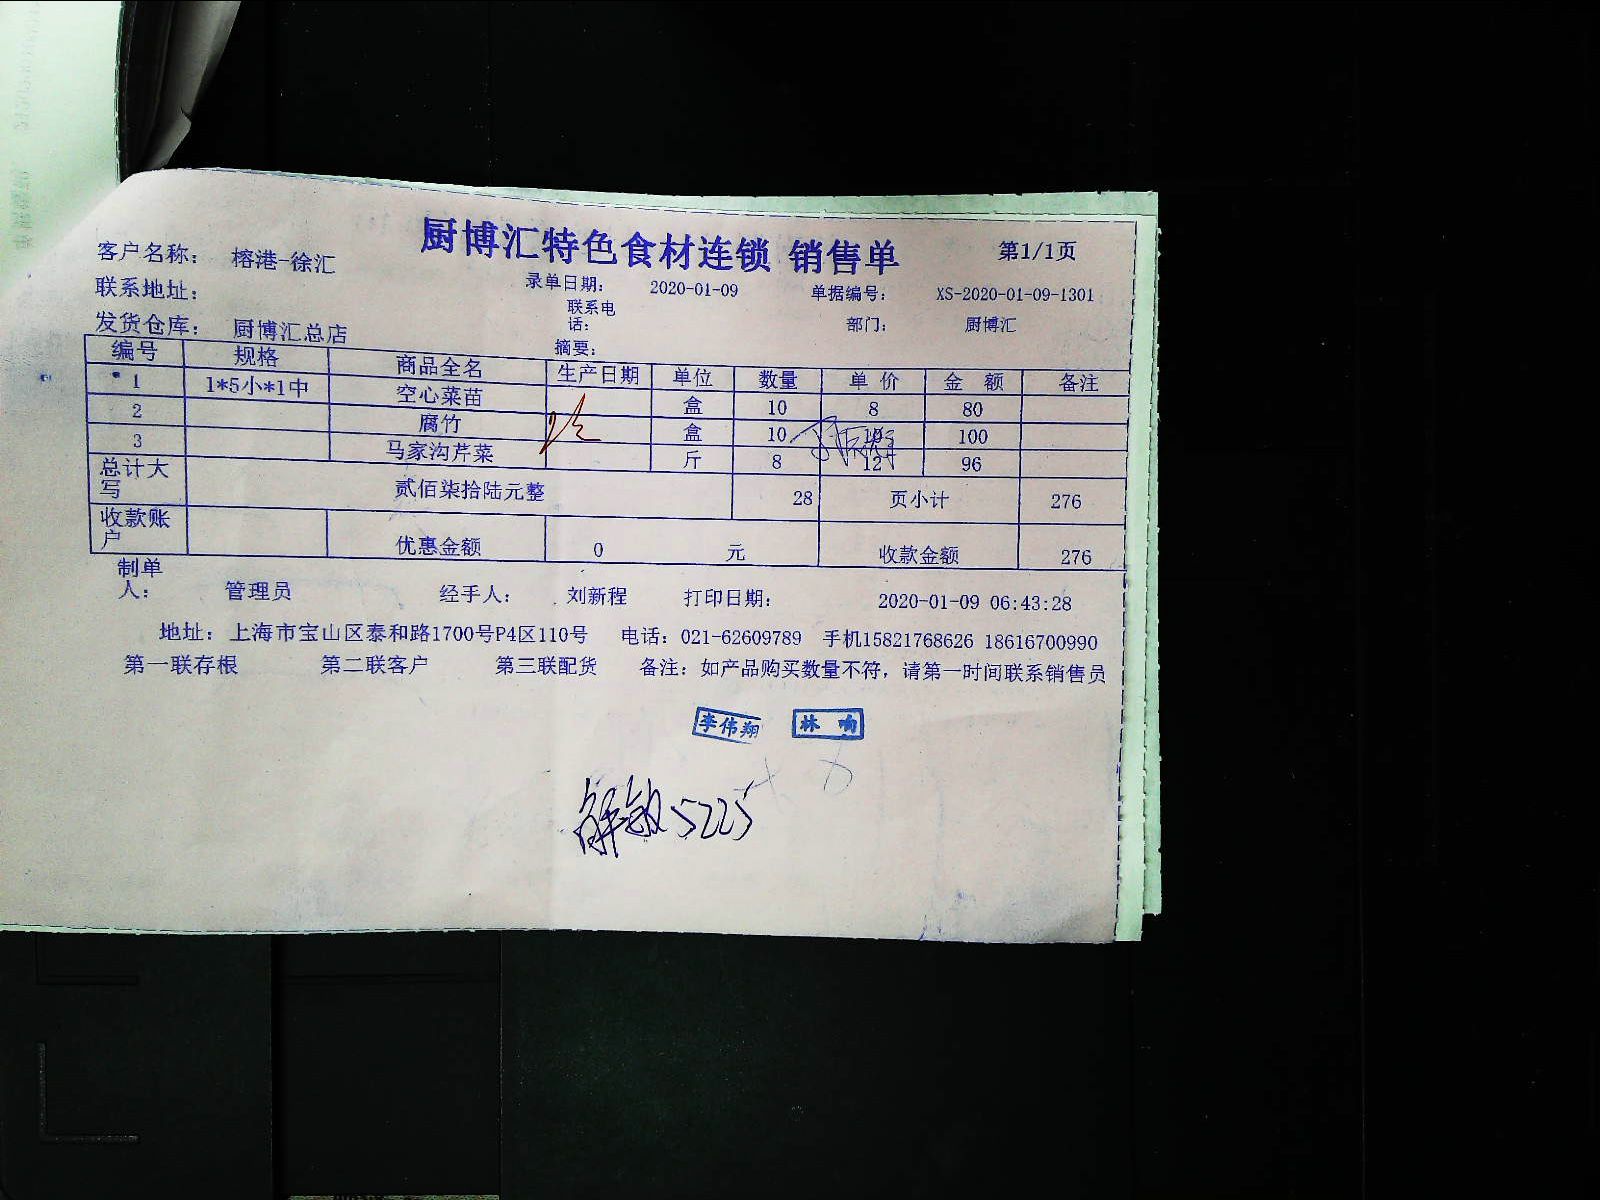 厨博汇特色食材连锁 销售单
第1/1页
客户名称： 榕港-徐汇
录单日期： 2020-01-09 单据编号： XS-2020-01-09-1301
联系地址：
联系电话：
部门： 厨博汇
发货仓库： 厨博汇总店
摘要：
编号 规格 商品全名 生产日期 单位 数量 单 价 金 额 备注
1 1*5小*1中 空心菜苗 盒 10 8 80
2 腐竹 盒 10 10 100
3 马家沟芹菜 斤 8 12 96
总计大写 贰佰柒拾陆元整 28 页小计 276
收款账户 优惠金额 0 元 收款金额 276
制单人： 管理员 经手人： 刘新程 打印日期： 2020-01-09 06:43:28
地址：上海市宝山区泰和路1700号P4区110号 电话：021-62609789 手机15821768626 18616700990
第一联存根 第二联客户 第三联配货 备注：如产品购买数量不符，请第一时间联系销售员
李伟翔 林响
解敏5225